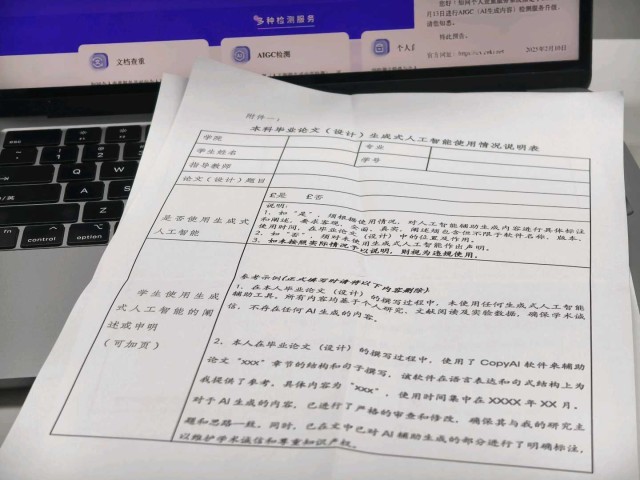 多种检测服务
文档查重
AIGC检测
个人
月13日进行AIGC（AI生成内容）检测服务升级，
特此预告。
2025年2月10日
附件一：
本科毕业论文（设计）生成式人工智能使用情况说明表
学院
专业
学生姓名
学号
指导教师
论文（设计）题目
是否使用生成式
人工智能
£是 £否
说明：
1、如“是”，须根据使用情况，对人工智能辅助生成内容进行具体标注
和阐述，要求客观、全面、真实，阐述须包含但不限于软件名称、版本、
使用时间、在毕业论文（设计）中的位置及作用。
2、如“否”，须对未使用生成式人工智能作出声明。
3、如未按照实际情况予以说明，则视为违规使用。
学生使用生成
式人工智能的阐
述或申明
（可加页）
参考示例（正式填写时请将以下内容删除）
1、在本人毕业论文（设计）的撰写过程中，未使用任何生成式人工智能
辅助工具。所有内容均基于个人研究、文献阅读及实验数据，确保学术诚
信，不存在任何AI生成的内容。
2、本人在毕业论文（设计）的撰写过程中，使用了CopyAI软件来辅助
论文“xxx”章节的结构和句子撰写，该软件在语言表达和句式结构上为
我提供了参考。具体内容为“xxx”，使用时间集中在XXXX年XX月。
对于AI生成的内容，已进行了严格的审查和修改，确保其与我的研究主
题和思路一致。同时，已在文中已对AI辅助生成的部分进行了明确标注，
以维护学术诚信和尊重知识产权。